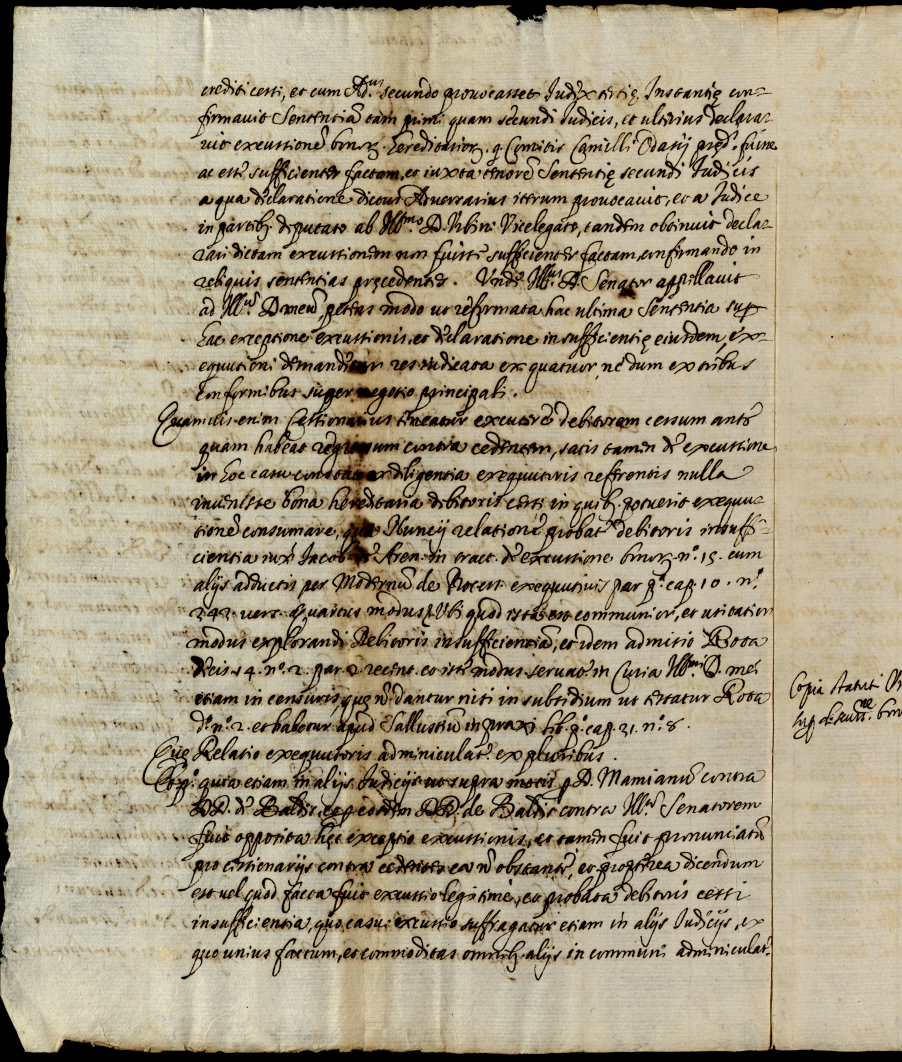 crediti cessi, et cum Ad.us secundo provocasset Judex tertię Instantię con=
firmavit Sententiã tam primi quam secundi Judicis, et ulterius declara=
vit excussionẽ bonoꝝ. hereditarioꝝ. q. Comitis Camilli Odasij pred.i fuisse
ac esse sufficienter factam, et iuxta tenorẽ Sententię secundi Judicis
a qua declaratione dictus Adversarius iterum provocavit, et a Judice
in partibꝫ deputato ab Ill.mo D. Urbini Vicelegato, tandem obtinuit decla=
rari dictam excussionem non fuisse sufficienter factam, confirmando in
reliquis sententias precedentes. Unde Ill.us D. Senator appellavit
ad Ill.us D meũ, petens modo ut reformata hac ultima Sententia sup
hac exceptione excussionis, et declaratione insufficientię eiusdem, ex=
equutioni demandetur res iudicata ex quatuor, ne dum ex tribus
conformibus super negotio principali.
Quamvis enim Cessionarius teneatur excutere debitorem cessum ante
quam habeat regressum contra cedentem, satis tamen de excussione
in hoc casu constat ex diligentia exequutoris referentis nulla
invenisse bona hereditaria debitoris cessi in quibꝫ potuerit exequu=
tionẽ consumare, qua Nuncij relatione probat.r debitoris insuffi=
cientia iux. Jacob. de Aren. in tract. de excussione bonoꝝ n.o 15. cum
alijs adductis per Modernũ de Potest. exequutivis par. p.a cap. 10. n.o
242. vers. Quartus modus, Ubi quod iste est communior, et usitatior
modus explorandi Debitoris insufficientiã, et idem admitit Rota
decis. 4. n.o 2. par. 2. recent. et iste modus servat.r in Curia Ill.mi D. mei
etiam in censuris que nõ dantur nisi in subsidium ut testatur Rota
d.o n.o 2. et habetur apud Sallustiũ in praxi lib. p.o cap. 31. n.o 8.
Que Relatio exequutoris adminiculat.r ex pluribus.
Et p.o quia etiam in alijs Judicijs ut supra motis p. D. Mamianũ contra
DD. de Baldis, et p. eosdem DD. de Baldis contra Ill.us Senatorem
fuit opposita hęc exceptio excussionis, et tamen fuit pronunciatũ
pro cessionarijs contra cedentes ea nõ obstante, et propterea dicendum
est vel quod facta fuit excussio legitime, et probata debitoris cessi
insufficientia, quo casu excussio suffragatur etiam in alijs Judicijs, ex
quo unius factum, et commoditas omnibꝫ alijs in communi adminiculat.r
Copia statut.
sup. discuss.ne bon